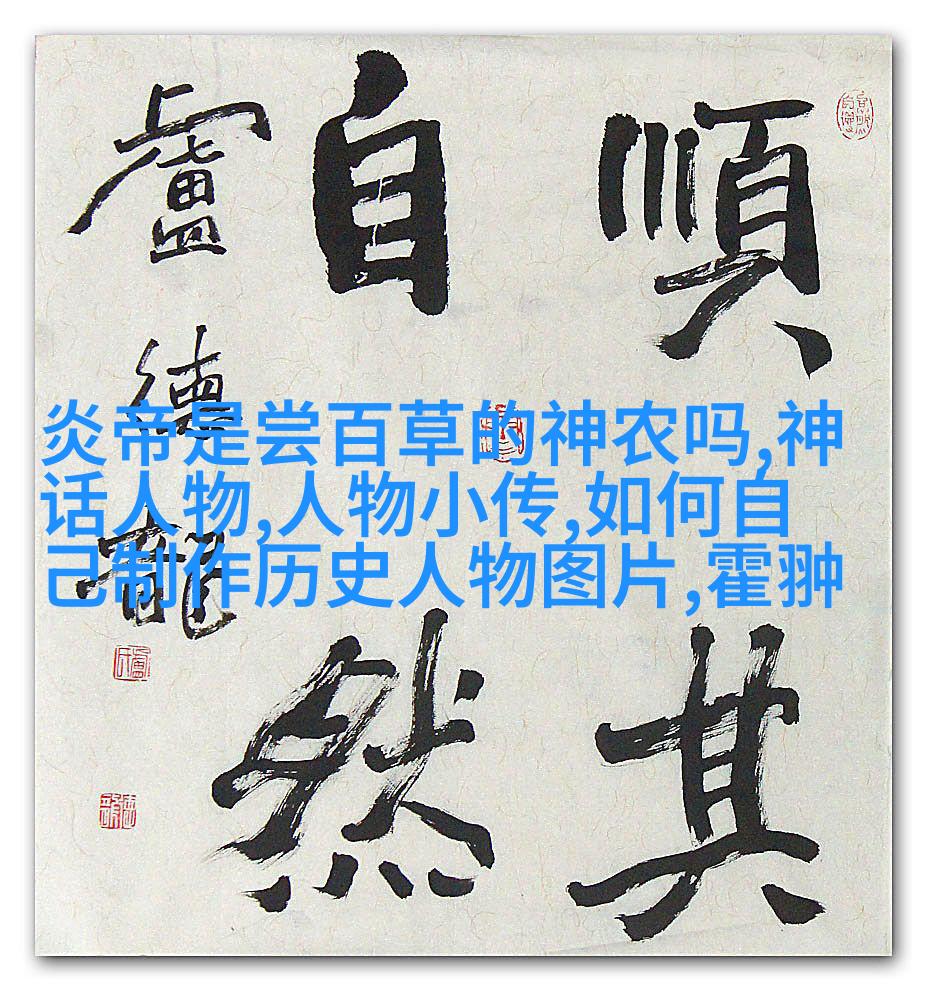 順其
自然
盧德龍
炎帝是尝百草的神农吗,神
话人物,人物小传,如何自
己制作历史人物图片,霍翀